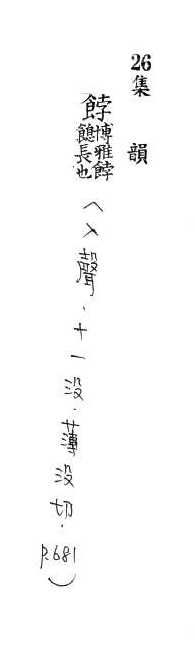 26集 韻
餑博雅餑䭒長也（入聲．十一沒．薄沒切．p.681）